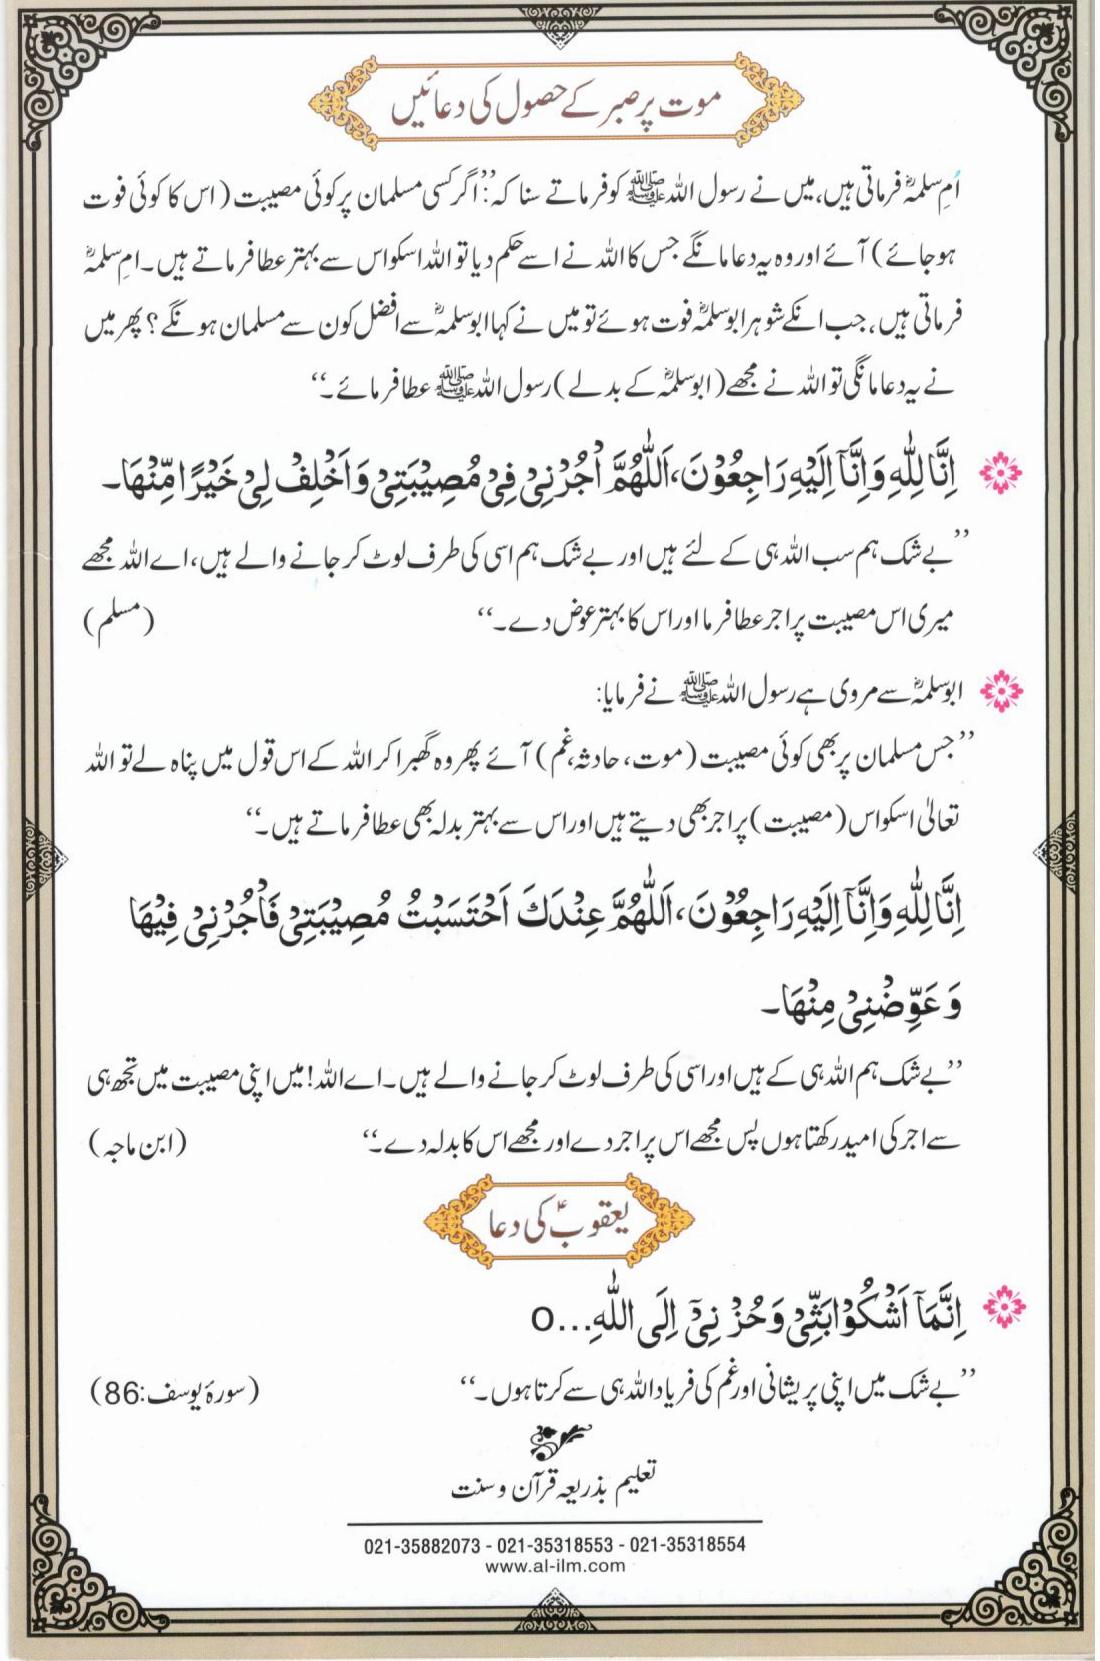 موت پر صبر کے حصول کی دعائیں
اُمِ سلمہؓ فرماتی ہیں، میں نے رسول اللہ ﷺ کو فرماتے سنا کہ: ’’اگر کسی مسلمان پر کوئی مصیبت (اس کا کوئی فوت
ہوجائے) آئے اور وہ یہ دعا مانگے جس کا اللہ نے اسے حکم دیا تو اللہ اسکو اس سے بہتر عطا فرماتے ہیں۔ امِ سلمہؓ
فرماتی ہیں، جب انکے شوہر ابو سلمہؓ فوت ہوئے تو میں نے کہا ابو سلمہؓ سے افضل کون سے مسلمان ہونگے؟ پھر میں
نے یہ دعا مانگی تو اللہ نے مجھے (ابو سلمہؓ کے بدلے) رسول اللہ ﷺ عطا فرمائے۔‘‘
اِنَّا لِلّٰہِ وَ اِنَّآ اِلَیْہِ رَاجِعُوْنَ، اَللّٰھُمَّ اْجُرْنِیْ فِیْ مُصِیْبَتِیْ وَ اَخْلِفْ لِیْ خَیْرًا مِّنْھَا۔
’’بے شک ہم سب اللہ ہی کے لئے ہیں اور بے شک ہم اسی کی طرف لوٹ کر جانے والے ہیں، اے اللہ مجھے
میری اس مصیبت پر اجر عطا فرما اور اس کا بہتر عوض دے۔‘‘ (مسلم)
ابو سلمہؓ سے مروی ہے رسول اللہ ﷺ نے فرمایا:
’’جس مسلمان پر بھی کوئی مصیبت (موت، حادثہ، غم) آئے پھر وہ گھبرا کر اللہ کے اس قول میں پناہ لے تو اللہ
تعالیٰ اسکو اس (مصیبت) پر اجر بھی دیتے ہیں اور اس سے بہتر بدلہ بھی عطا فرماتے ہیں۔‘‘
اِنَّا لِلّٰہِ وَ اِنَّآ اِلَیْہِ رَاجِعُوْنَ، اَللّٰھُمَّ عِنْدَكَ اَحْتَسَبْتُ مُصِیْبَتِیْ فَاْجُرْنِیْ فِیْھَا
وَ عَوِّضْنِیْ مِنْھَا۔
’’بے شک ہم اللہ ہی کے ہیں اور اسی کی طرف لوٹ کر جانے والے ہیں۔ اے اللہ! میں اپنی مصیبت میں تجھ ہی
سے اجر کی امید رکھتا ہوں پس مجھے اس پر اجر دے اور مجھے اس کا بدلہ دے۔‘‘ (ابن ماجہ)
یعقوبؑ کی دعا
اِنَّمَآ اَشْکُوْا بَثِّیْ وَحُزْنِیْٓ اِلَی اللّٰہِ...o
’’بے شک میں اپنی پریشانی اور غم کی فریاد اللہ ہی سے کرتا ہوں۔‘‘ (سورۂ یوسف: 86)
تعلیم بذریعہ قرآن و سنت
021-35882073 - 021-35318553 - 021-35318554
www.al-ilm.com